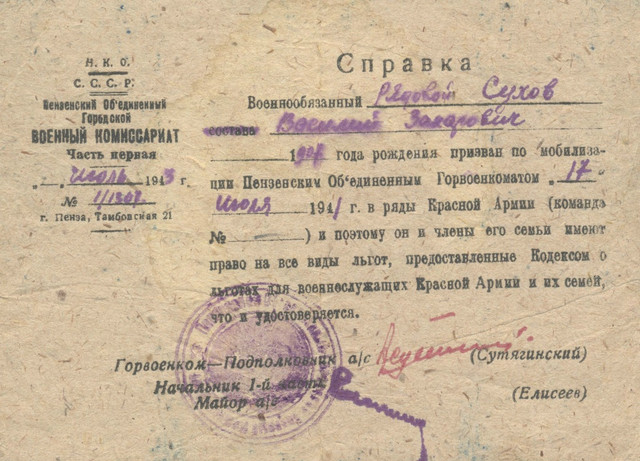 Н. К. О.
С. С. С. Р.
Пензенский Об'единенный
Городской
ВОЕННЫЙ КОМИССАРИАТ
Часть первая
„ „ Июль 1943 г.
№ 1/1307
г. Пенза, Тамбовская 21
Справка
Военнообязанный рядовой Сухов
состава Василий Захарович
1907 года рождения призван по мобилиза-
ции Пензенским Об'единенным Горвоенкоматом „17"
Июля 1941 г. в ряды Красной Армии (команда
№ ) и поэтому он и члены его семьи имеют
право на все виды льгот, предоставленные Кодексом о
льготах для военнослужащих Красной Армии и их семей,
что и удостоверяется.
Горвоенком—Подполковник а/с (Сутягинский)
Начальник 1-й части
Майор а/с (Елисеев)